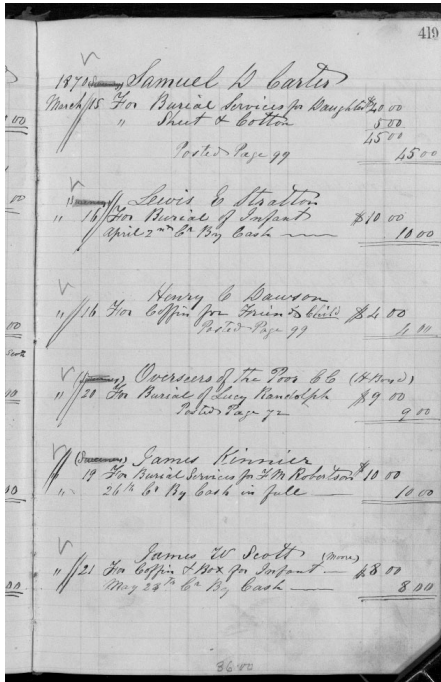 419
1870 Samuel D Carter
March 15 For Burial Services for Daughter $40.00
" Sheet & Cotton 5.00
45.00
Posted Page 99 45.00
Lewis E Stratton
" 16 For Burial of Infant $10.00
April 2nd Cr By Cash 10.00
Henry C Dawson
" 16 For Coffin for Friends Child $4.00
Posted Page 99 4.00
Overseers of the Poor CC (H Boyd)
" 20 For Burial of Lucy Randolph $9.00
Posted Page 72 9.00
James Kinnier
" 19 For Burial Services for F M Robertson $10.00
" 26th Cr By Cash in full 10.00
James W Scott (more)
" 21 For Coffin & Box for Infant $8.00
May 28th Cr By Cash 8.00
36 00